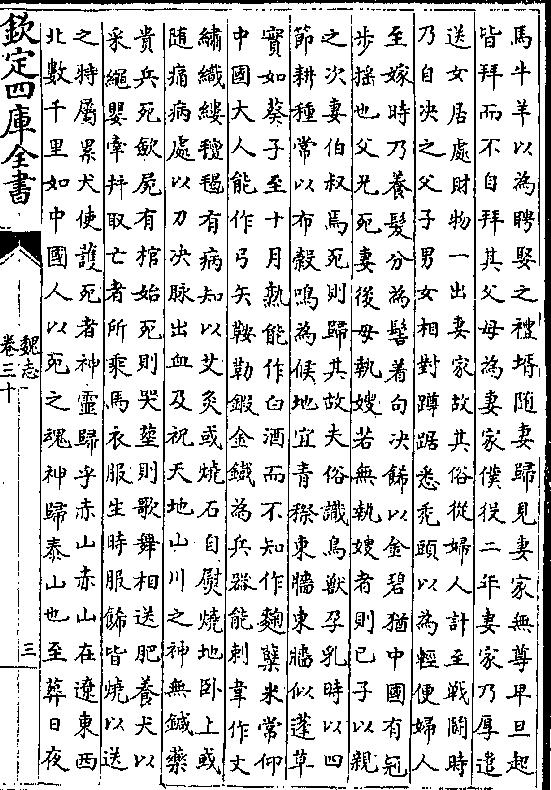 馬牛羊以為聘娶之禮壻隨妻歸見妻家無尊卑旦起
皆拜而不自拜其父母為妻家僕役二年妻家乃厚遣
送女居處財物一出妻家故其俗從婦人計至戰鬬時
乃自決之父子男女相對蹲踞悉禿頭以為輕便婦人
至嫁時乃養髮分為髻著句決飾以金碧猶中國有冠
步搖也父兄死妻後母執嫂若無執嫂者則己子以親
之次妻伯叔焉死則歸其故夫俗識鳥獸孕乳時以四
節耕種常以布穀鳴為候地宜青穄東牆東牆似蓬草
實如葵子至十月熟能作白酒而不知作麴櫱米常仰
中國大人能作弓矢鞍勒鍜金鐵為兵器能刺韋作文
繡織縷氊𣯶有病知以艾灸或燒石自熨燒地卧上或
随痛病處以刀決脉出血及祝天地山川之神無鍼藥
貴兵死歛屍有棺始死則哭塟則歌舞相送肥養犬以
采繩嬰牽并取亡者所乘馬衣服生時服飾皆燒以送
之特屬累犬使護死者神靈歸乎赤山赤山在遼東西
北數千里如中國人以死之魂神歸泰山也至葬日夜
欽定四庫全書
魏志
卷三十
三